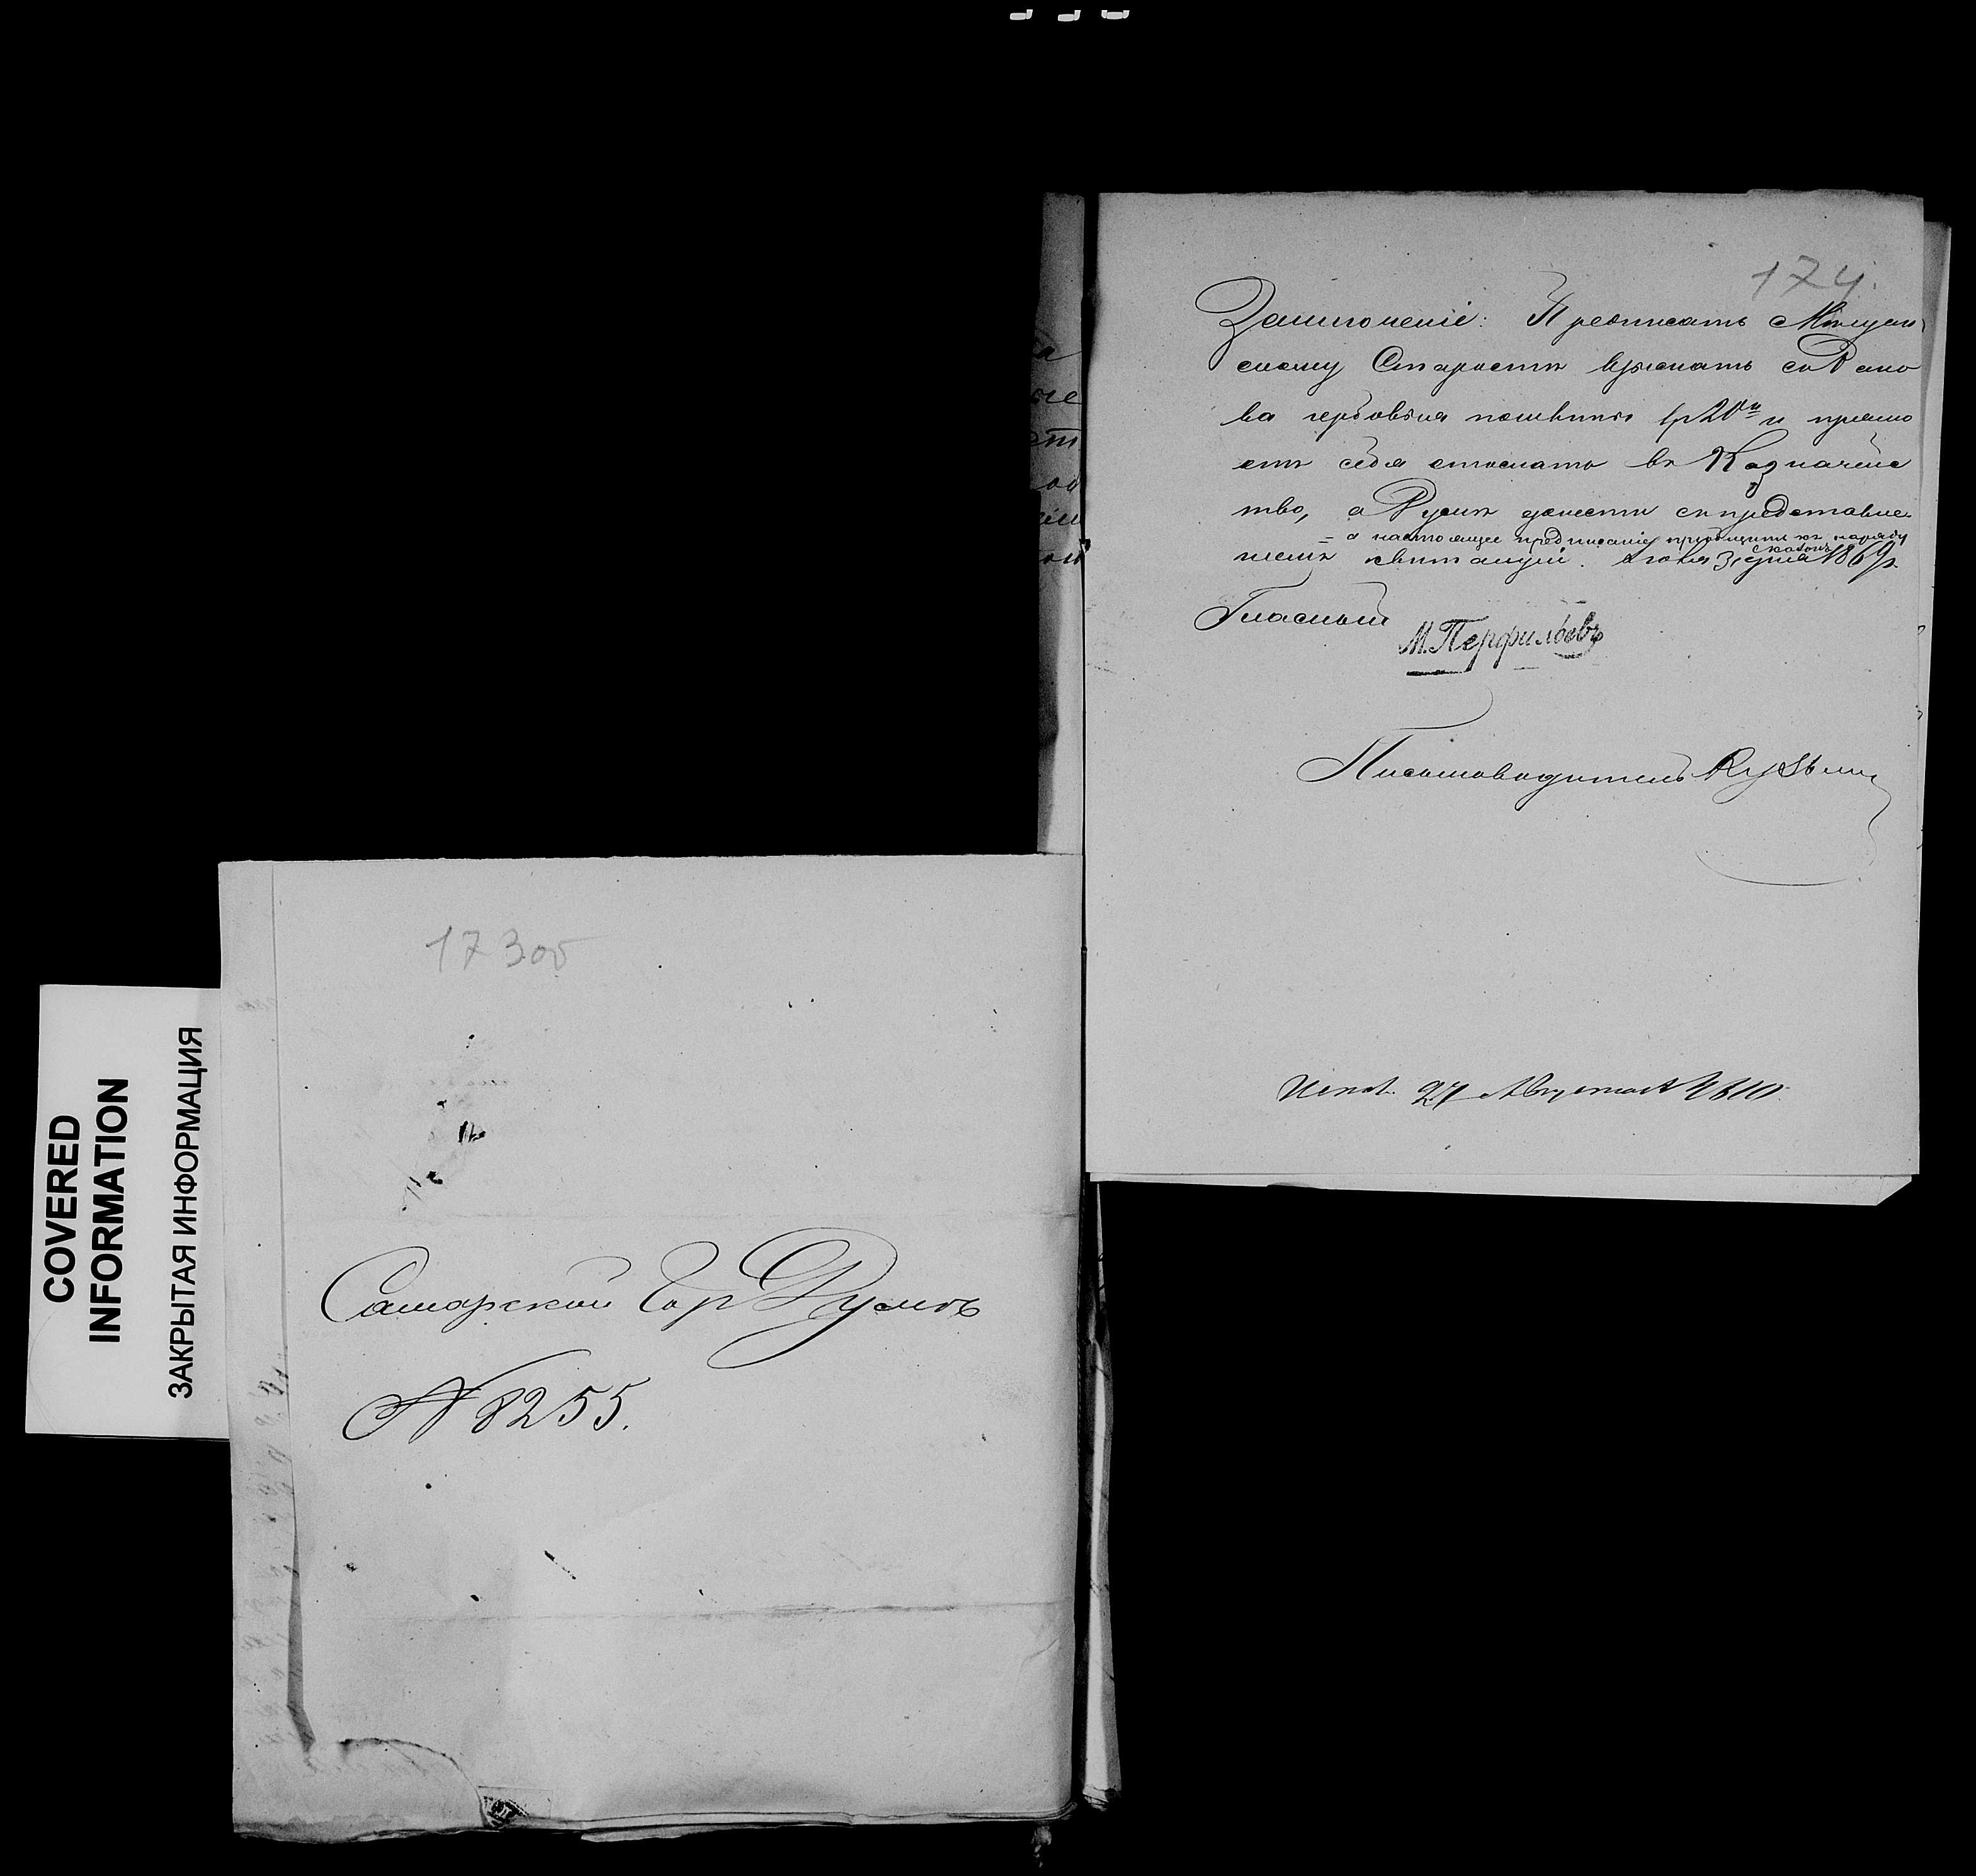 174.
Заключеніе: Предписать Мѣщан-
скому Старостѣ взыскать съ Дано
ва гербовыя пошлины 1р 20к и прямо
отъ себя отослать въ Казначейс
тво, а Думѣ донести съ представле-
= а настоящее предписаніе пріобщить къ наряду
ніемъ квитанціи. Іюля 31 дня 1869г.
Гласный
М. Перфильевъ
Письмоводитель Кузьмин
Испол. 27 Августа № 4610
173об
Самарской Гор Думѣ
№ 8255.
COVERED
INFORMATION
ЗАКРЫТАЯ ИНФОРМАЦИЯ